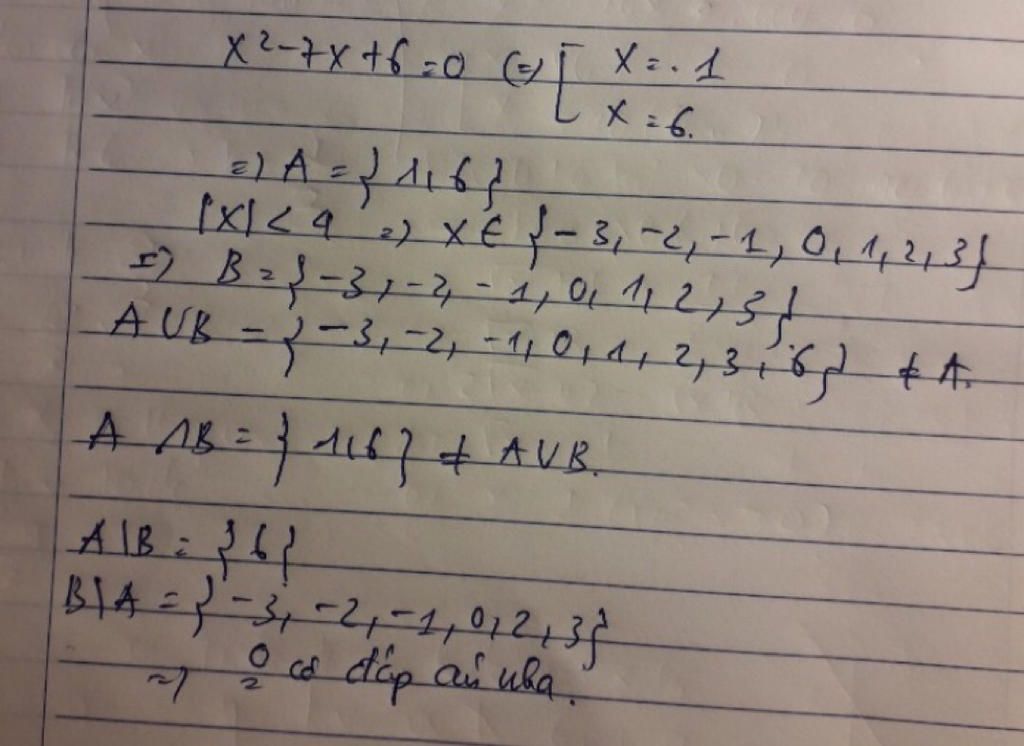 x²-7x+6=0 (=) [ x = . 1
x = 6.
=) A = {1, 6}
|x| < 4 =) x ∈ {-3, -2, -1, 0, 1, 2, 3}
=) B = {-3, -2, -1, 0, 1, 2, 3}
A ∪ B = {-3, -2, -1, 0, 1, 2, 3, 6} ≠ A.
A ∩ B = {1, 6} ≠ A ∪ B.
A \ B = {6}
B \ A = {-3, -2, -1, 0, 2, 3}
=) có đáp án